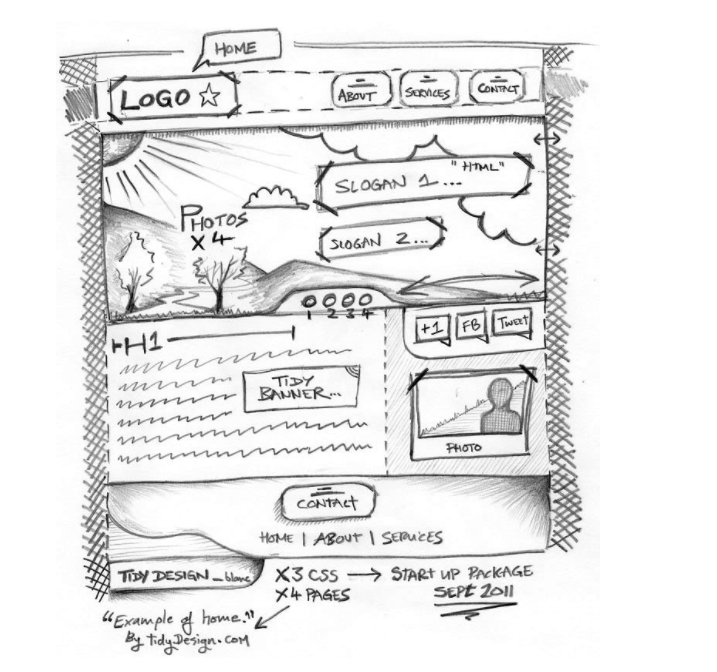 HOME
LOGO
ABOUT
SERVICES
CONTACT
"HTML"
SLOGAN 1...
PHOTOS
X 4
SLOGAN 2...
1 2 3 4
H1
+1
FB
TWEET
TIDY
BANNER...
PHOTO
CONTACT
HOME | ABOUT | SERVICES
TIDY DESIGN_blanc
X3 CSS → START UP PACKAGE
X4 PAGES
SEPT 2011
"Example of home."
By TidyDesign.com